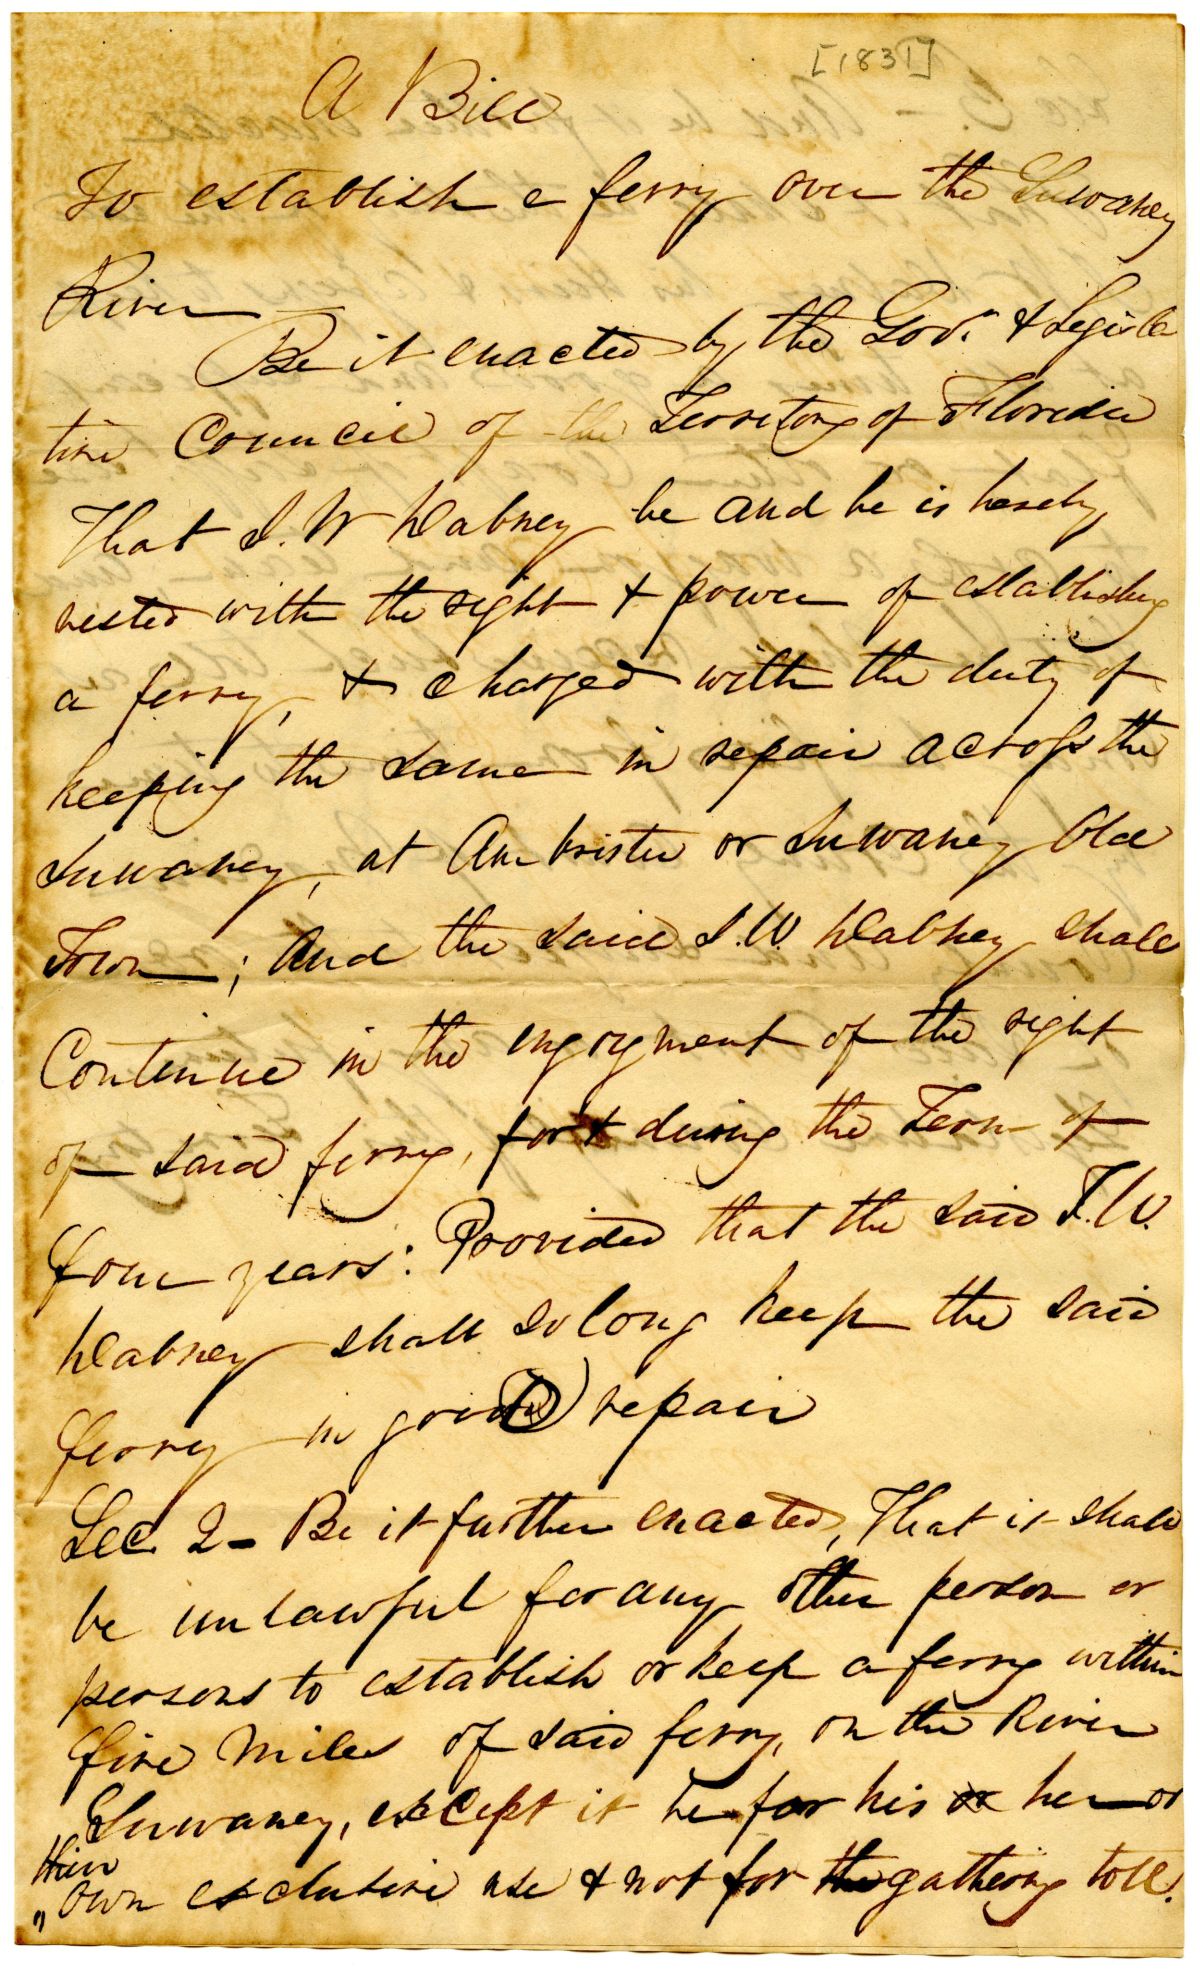 [1831]
A Bill
To establish a ferry over the Suwaney
River
Be it enacted by the Gov.r & Legisla
tive Council of the Territory of Florida
That I. W Dabney be and he is hereby
vested with the right & power of establishing
a ferry, & charged with the duty of
keeping the same in repair across the
Suwaney, at Ambrister or Suwaney Old
Town; And the said I. W. Dabney shall
Continue in the enjoyment of the right
of said ferry, for & during the Term of
four years: Provided that the said I. W.
Dabney shall so long keep the said
ferry in good repair
Sec. 2 - Be it further enacted, That it shall
be unlawful for any other person or
persons to establish or keep a ferry within
five miles of said ferry, on the River
Suwaney, except it be for his or her or
their
" own exclusive use & not for the gathering toll.